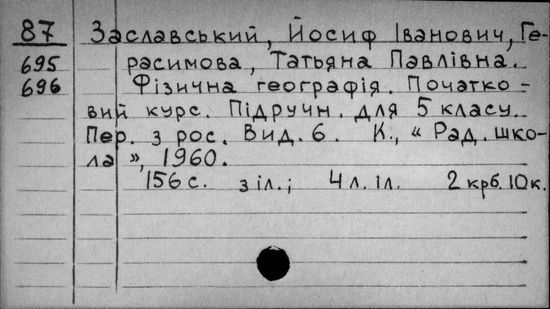 87 Заславський, Йосиф Іванович, Ге-
695 расимова, Татьяна Павлівна.
696 Фізична географія. Початко-
вий курс. Підручн. для 5 класу.
Пер. з рос. Вид. 6. К., « Рад. шко-
ла », 1960.
156 с. з іл.; 4 л. іл. 2 крб. 10 к.